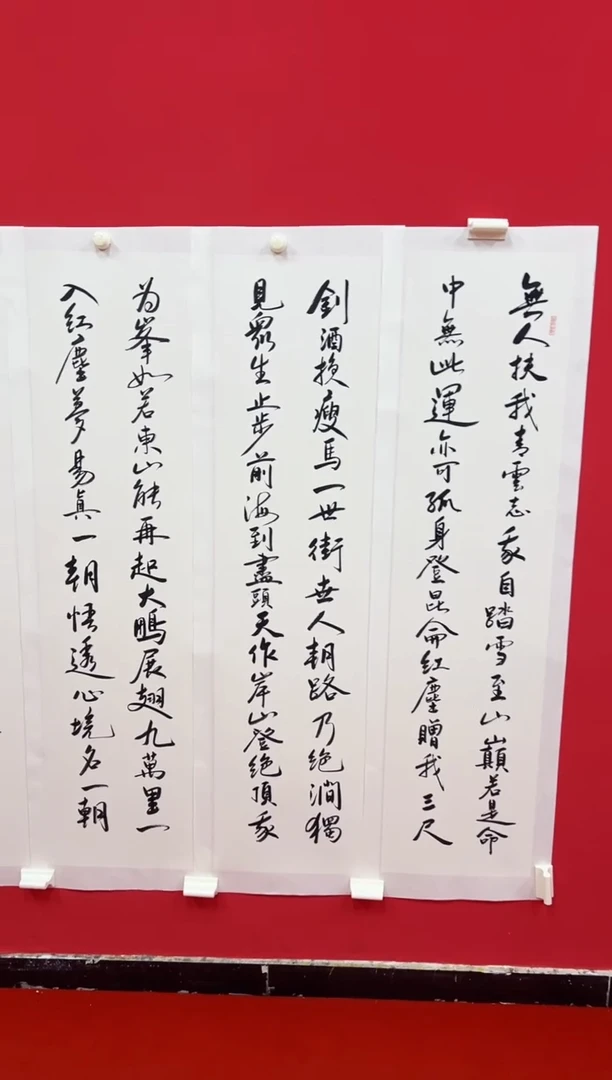 無人扶我青雲志我自踏雪至山巔若是命
中無此運亦可孤身登昆侖紅塵贈我三尺
劍酒換瘦馬一世街世人朝路乃絕澗獨
見眾生止步前海到盡頭天作岸山登絕頂我
为峯如若東山能再起大鵬展翅九萬里一
入紅塵夢易真一朝悟透心境名一朝